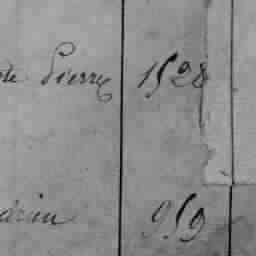 te Pierre 1528
drien 959